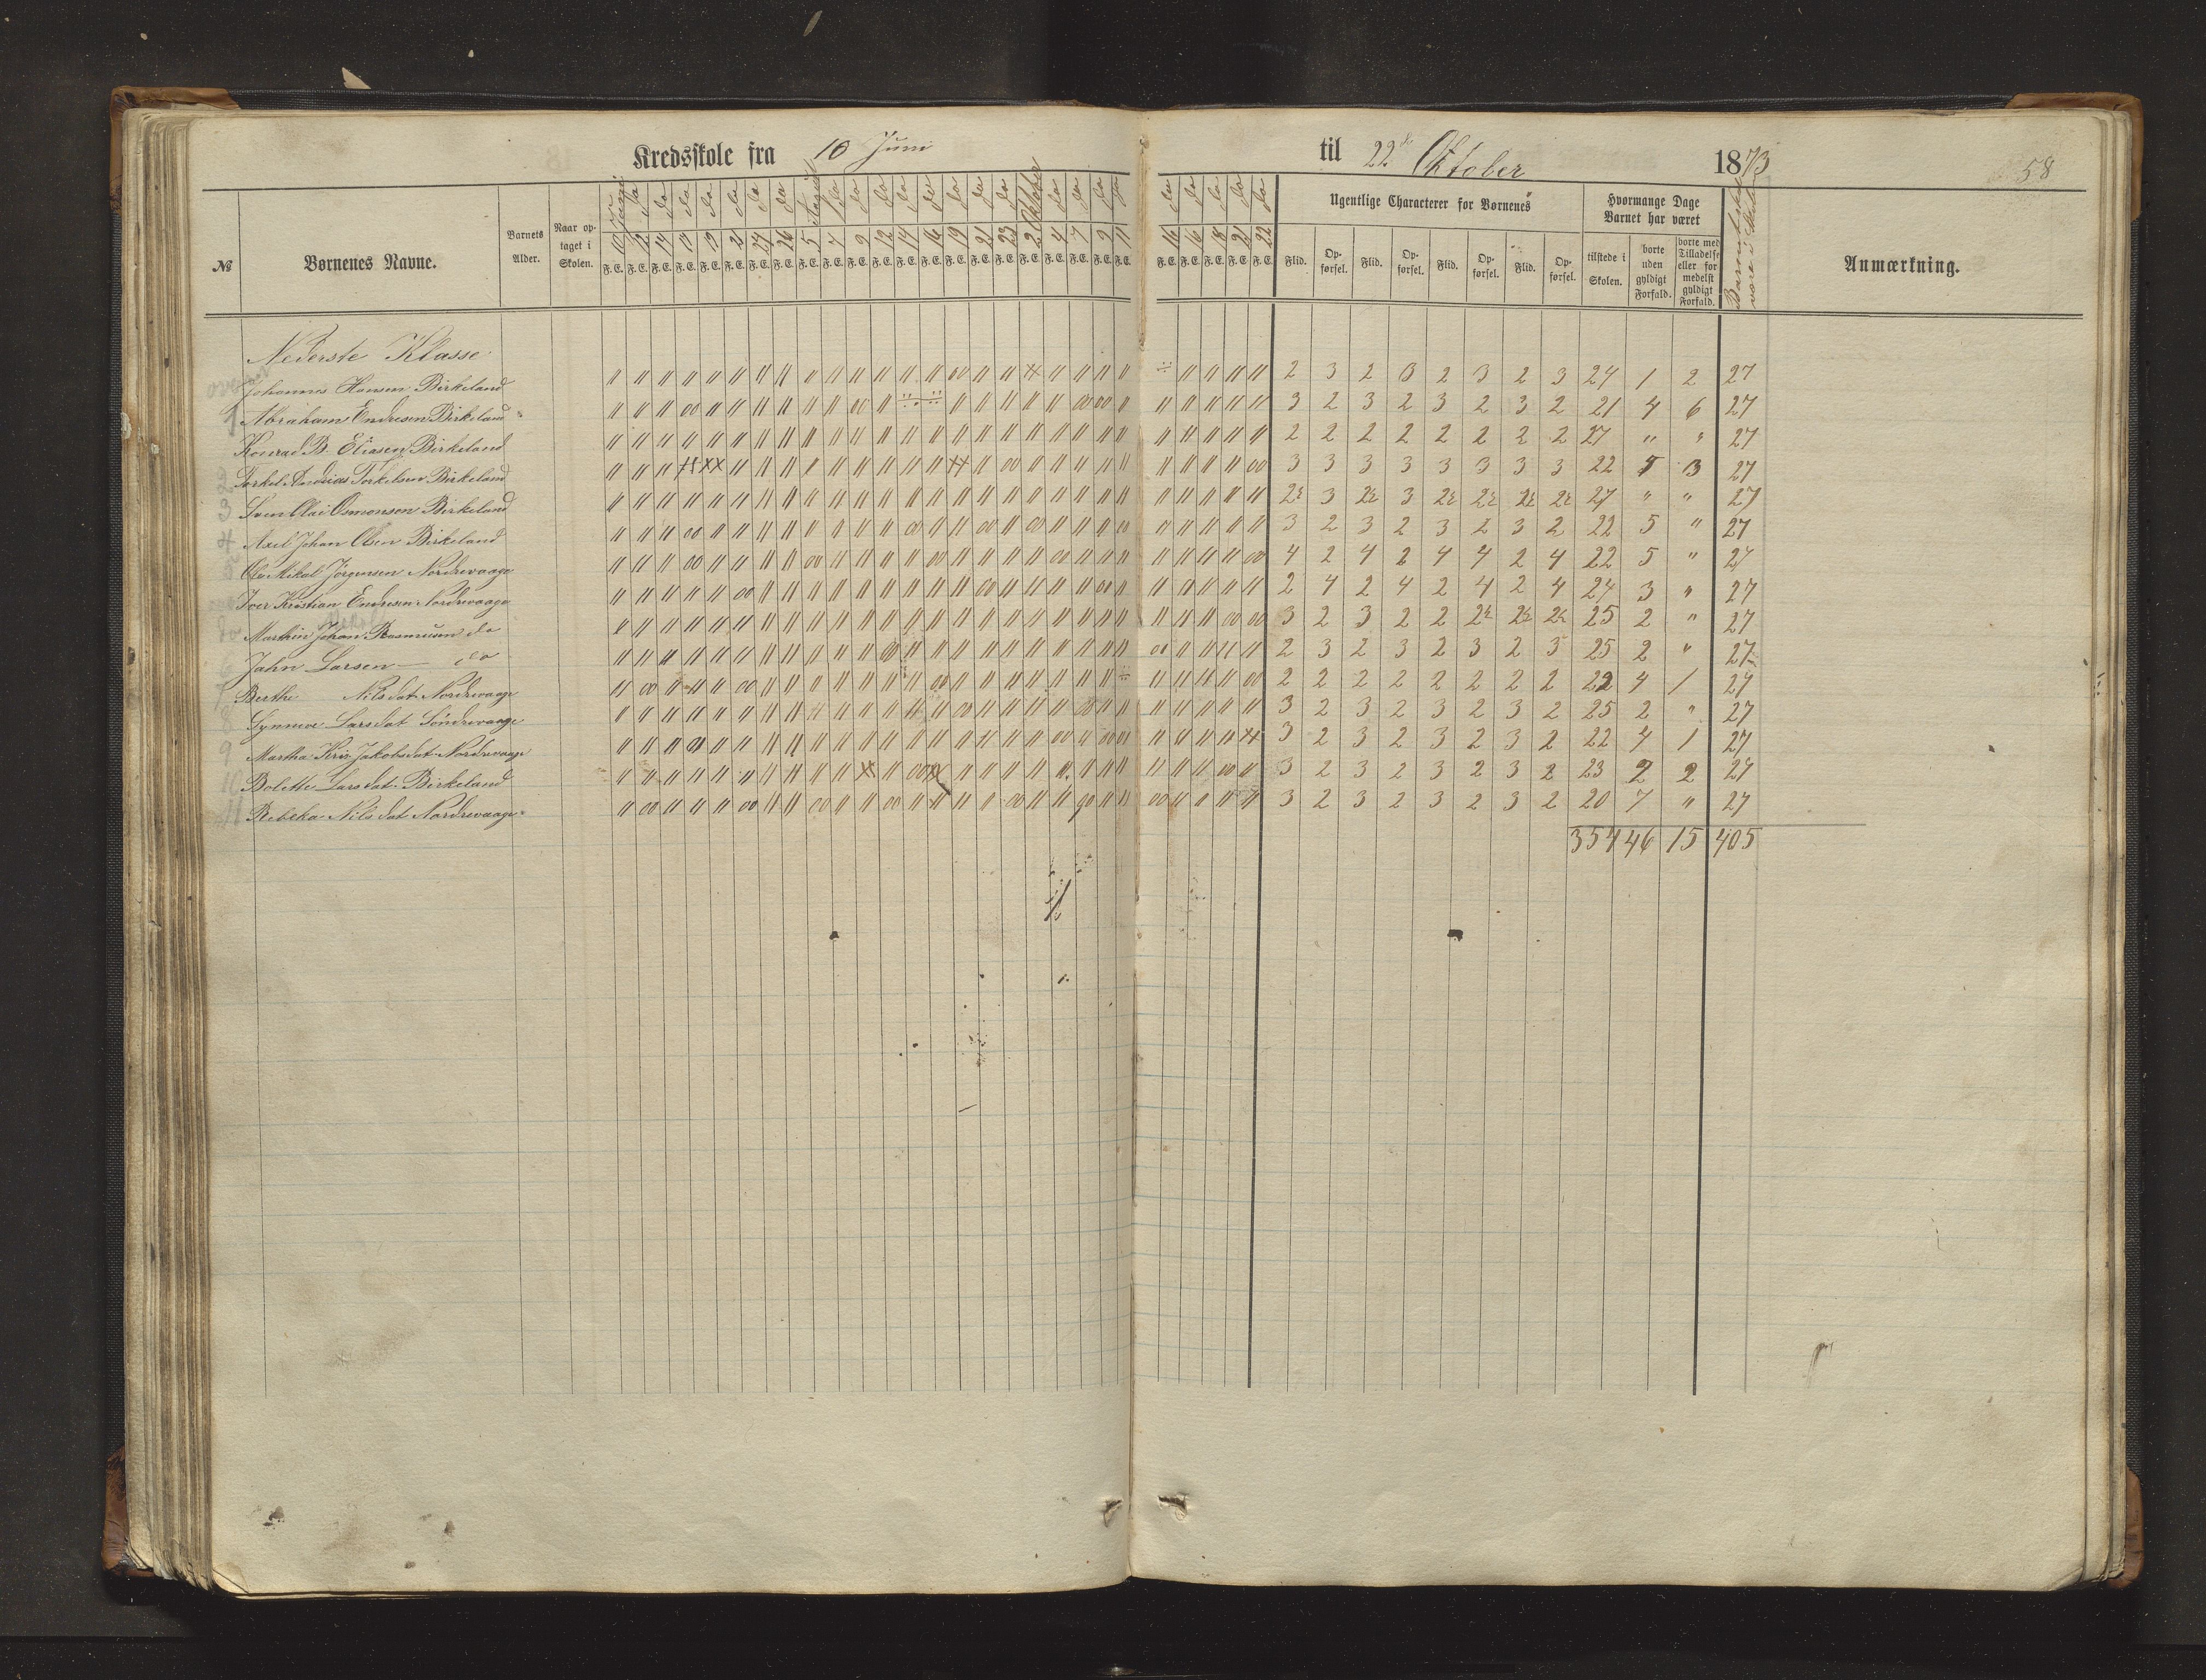 Kredsskole fra 10 Juni til 22de Oktober 1873
58
№ Børnenes Navne. Barnets Alder. Naar optaget i Skolen.
10 12 14 17 19 21 24 26 5 7 9 12 14 16 19 21 23 2 4 7 9 11 16 16 18 21 22
F. E. F. E. F. E. F. E. F. E. F. E. F. E. F. E. F. E. F. E. F. E. F. E. F. E. F. E. F. E. F. E. F. E. F. E. F. E. F. E. F. E. F. E. F. E. F. E. F. E. F. E. F. E.
Ugentlige Characterer for Børnenes
Flid. Opførsel. Flid. Opførsel. Flid. Opførsel. Flid. Opførsel.
Hvormange Dage Barnet har været
tilstede i Skolen. borte uden gyldigt Forfald. borte med Tilladelse eller for medelst gyldigt Forfald.
Anmærkning.
Nederste Klasse
Johannes Hansen Birkeland 2 3 2 3 2 3 2 3 24 1 2 27
1 Abraham Endresen Birkeland 3 2 3 2 3 2 3 2 21 4 6 27
Konrad B. Eliasen Birkeland 2 2 2 2 2 2 2 2 27 " " 27
2 Torkel Andreas Torkelsen Birkeland 3 3 3 3 3 3 3 3 22 5 3 27
3 Sven Olai Osmonsen Birkeland 2½ 3 2½ 3 2½ 2½ 2½ 2½ 27 " " 27
4 Axel Johan Olsen Birkeland 3 2 3 2 3 2 3 2 22 5 " 27
5 Ole Mikal Jörgensen Nordrevaage 4 2 4 2 4 4 2 4 22 5 " 27
Iver Kristian Endresen Nordrevaage 2 4 2 4 2 4 2 4 24 3 " 27
Marthin Johan Rasmusen do 3 2 3 2 2 2½ 2½ 2½ 25 2 " 27
6 Jahn Larsen — do 2 3 2 3 2 3 2 3 25 2 " 27
7 Berthe Nilsdat. Nordrevaage 2 2 2 2 2 2 2 2 22 4 1 27
8 Synneve Larsdat Söndrevaage 3 2 3 2 3 2 3 2 25 2 " 27
9 Martha Kris. Jakobsdat Nordrevaage 3 2 3 2 3 2 3 2 22 4 1 27
10 Bolette Larsdat. Birkeland 3 2 3 2 3 2 3 2 23 2 2 27
11 Rebeka Nilsdat Nordrevaage 3 2 3 2 3 2 3 2 20 7 " 27
354 46 15 405